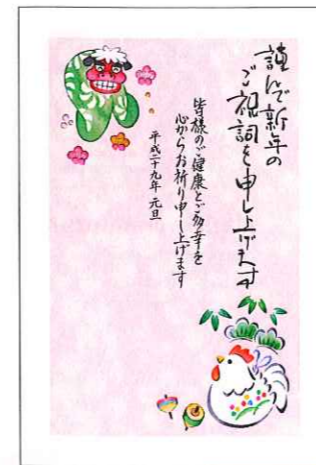 謹んで新年の
ご祝詞を申し上げます
皆様のご健康とご多幸を
心からお祈り申し上げます
平成二十九年 元旦